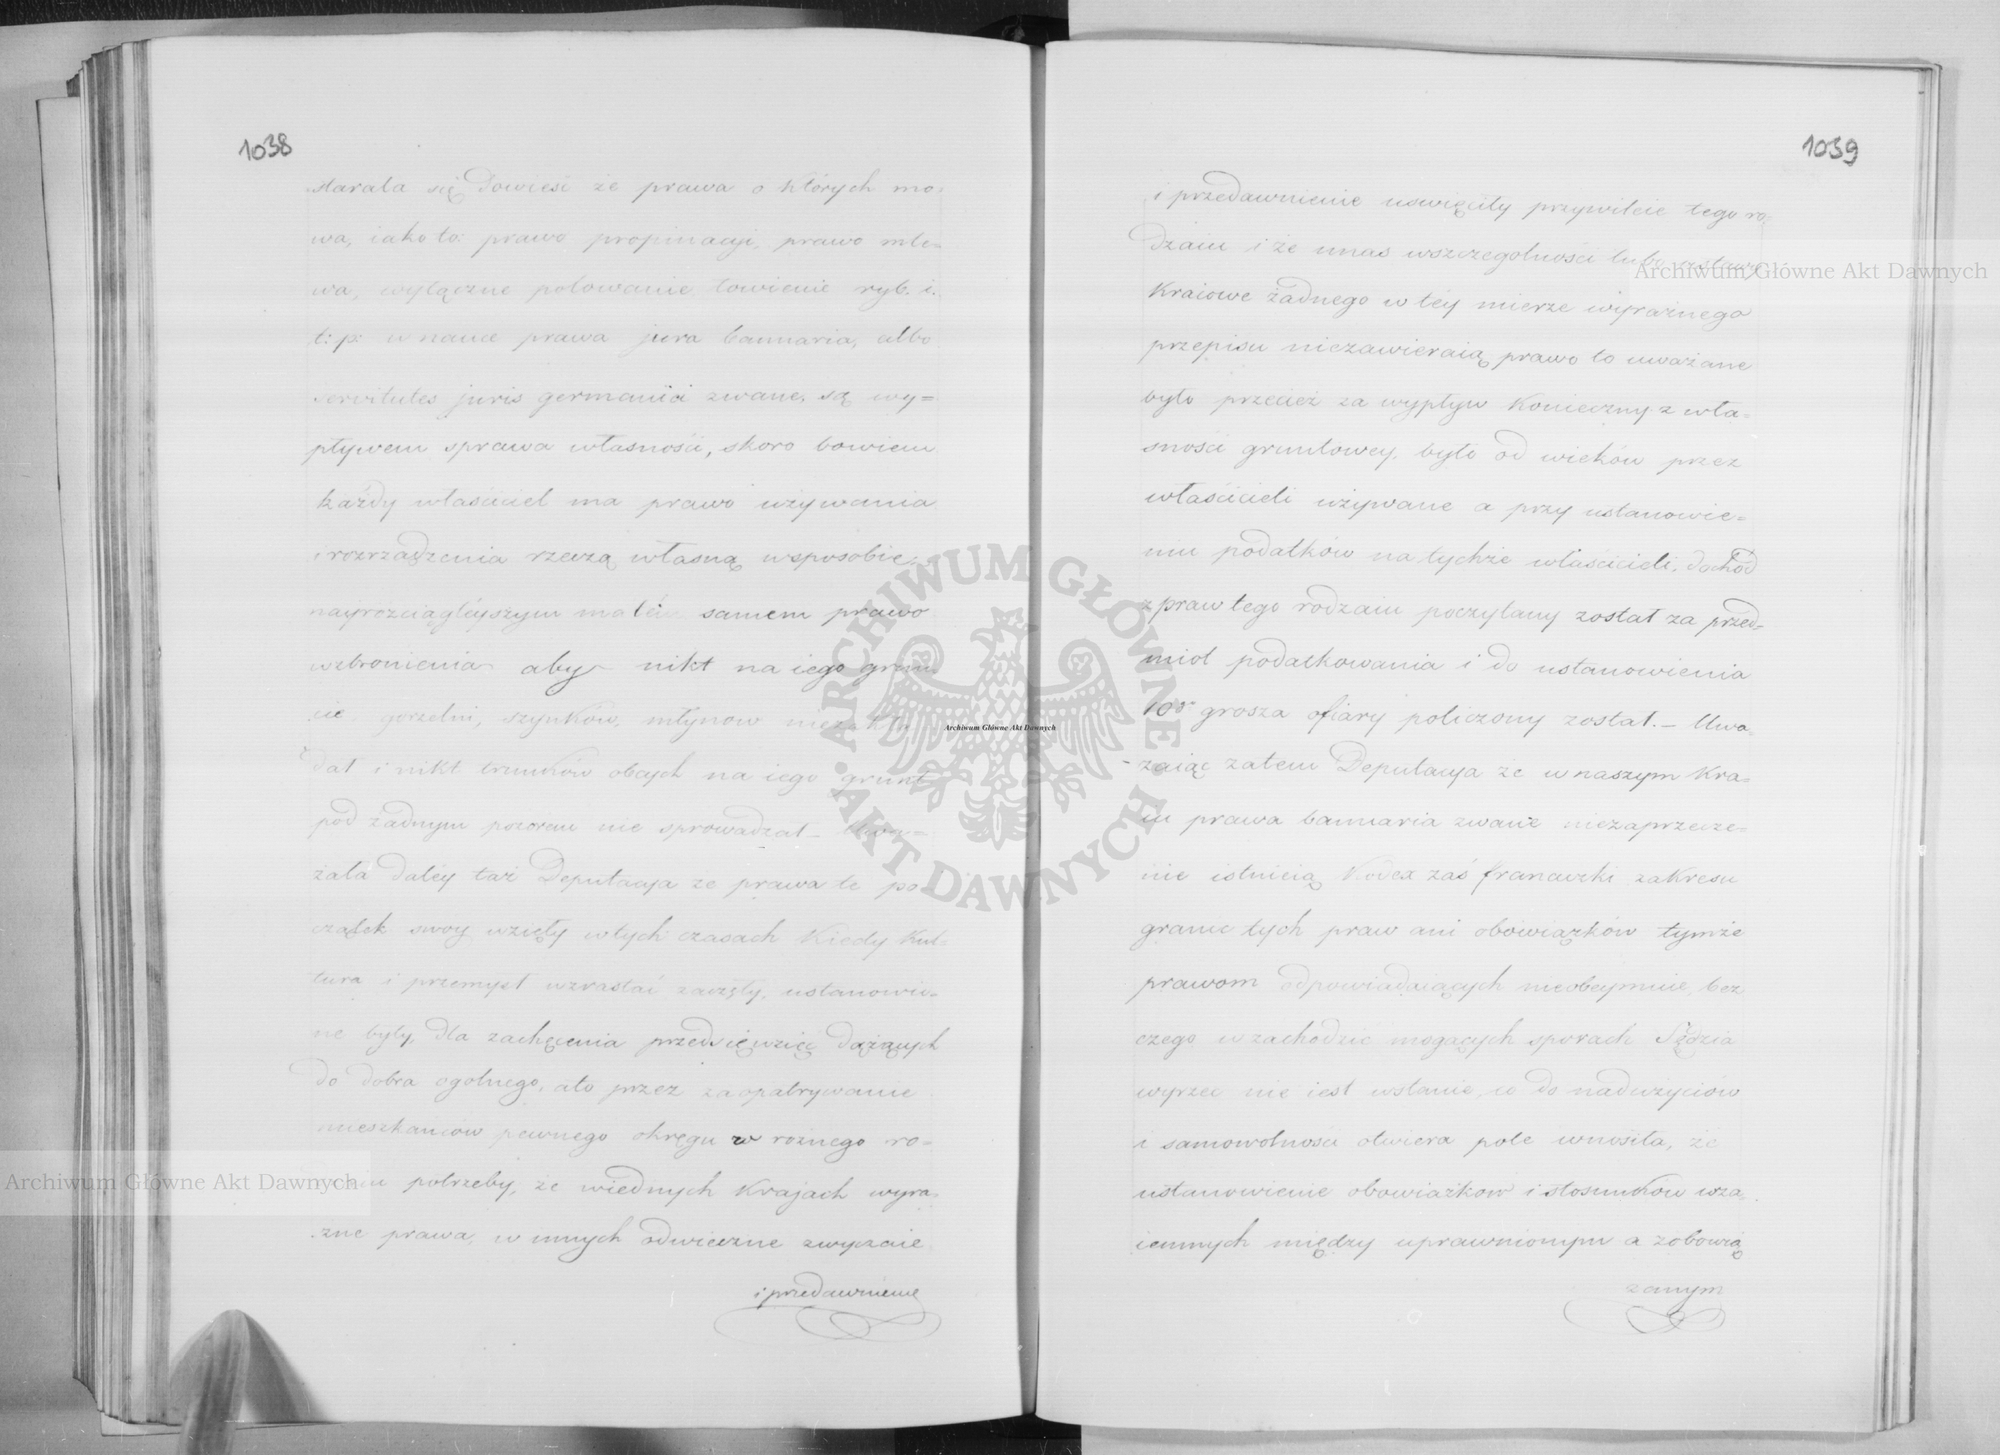 1038
starała się dowieść że prawa o których mo-
wa, iako to: prawo propinacyi, prawo mle-
wa, wyłączne polowanie, łowienie ryb. i.
t: p: w nauce prawa jura bannaria, albo
servitutes juris germanici zwane, są wy=
pływem z prawa własności, skoro bowiem
każdy właściciel ma prawo używania
i rozrządzenia rzeczą własną w sposobie
nayrozciągléyszym ma tém samem prawo
wzbronienia aby nikt na iego grun
cie gorzelni, szynków, młynow niezakła
dał i nikt trunków obcych na iego grunt
pod żadnym pozorem nie sprowadzał – Uwa=
żała daléy taż Deputacya że prawa te po
czątek swoy wzięły w tych czasach kiedy kul-
tura i przemysł wzrastać zaczęły, ustanowio-
ne były dla zachęcenia przedsięwzięć dążących
do dobra ogolnego, a to przez zaopatrywanie
mieszkancow pewnego okręgu w rożnego ro-
potrzeby, że w iednych krajach wyra-
zne prawa, w innych odwieczne zwyczaie
i przedawnienie
1039
i przedawnienie uswięciły przywileie tego ro-
dzaiu i że unas wszczegolności lubo ustawy
kraiowe żadnego w téy mierze wyraznego
przepisu niezawieraią prawo to uważane
było przecież za wypływ konieczny z wła-
sności gruntowey, było od wieków przez
właścicieli używane a przy ustanowie-
niu podatków na tychże właścicieli, dochód
z praw tego rodzaiu poczytany został za przed-
miot podatkowania i do ustanowienia
10go grosza ofiary policzony został. – Uwa-
żaiąc zatem Deputacya że w naszym kra-
iu prawa bannaria zwane niezaprzecze-
nie istnieią Kodex zaś francuzki zakresu
granic tych praw ani obowiązków tymże
prawom odpowiadaiących nieobeymuie, bez
czego w zachodzić mogących sporach Sędzia
wyrzec nie iest wstanie, co do nadużyciów
i samowolności otwiera pole wnosiła, że
ustanowienie obowiązkow i stosunków wza-
iemnych między uprawnionym a zobowią
zanym
Archiwum Główne Akt Dawnych
Archiwum Główne Akt Dawnych
Archiwum Główne Akt Dawnych
ARCHIWUM GŁÓWNE AKT DAWNYCH